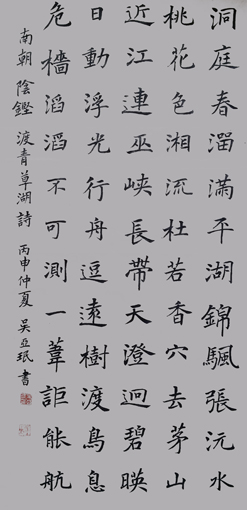 洞庭春溜滿平湖錦颿張沅水
桃花色湘流杜若香穴去茅山
近江連巫峽長帶天澄迥碧暎
日動浮光行舟逗遠樹渡鳥息
危檣滔滔不可測一葦詎能航
南朝陰鏗渡青草湖詩 丙申仲夏 吳亞珉書